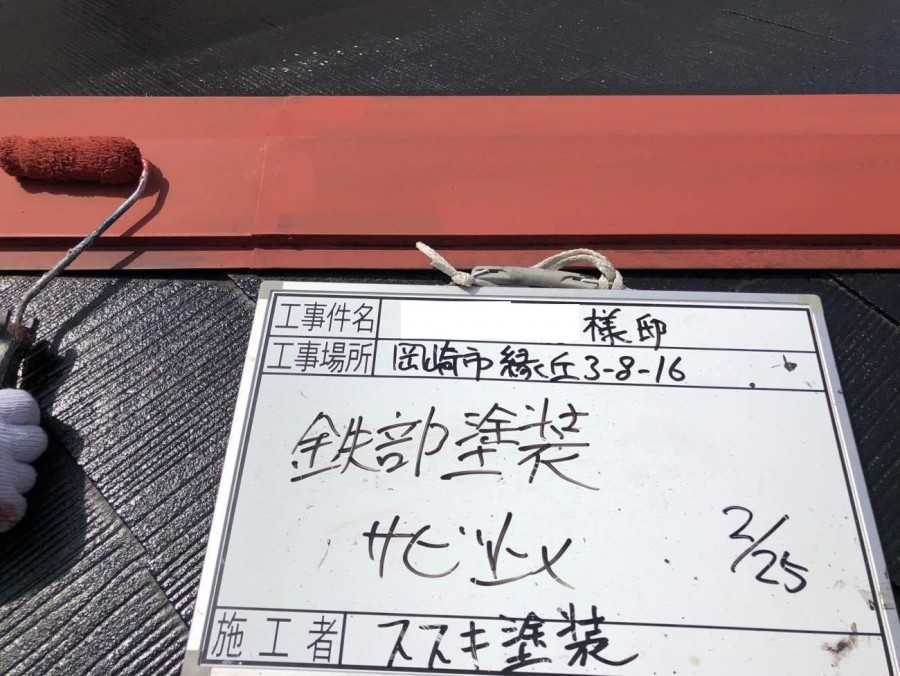 工事件名 様邸
工事場所 岡崎市緑丘3-8-16
鉄部塗装
サビ止メ
2/25
施工者 スズキ塗装